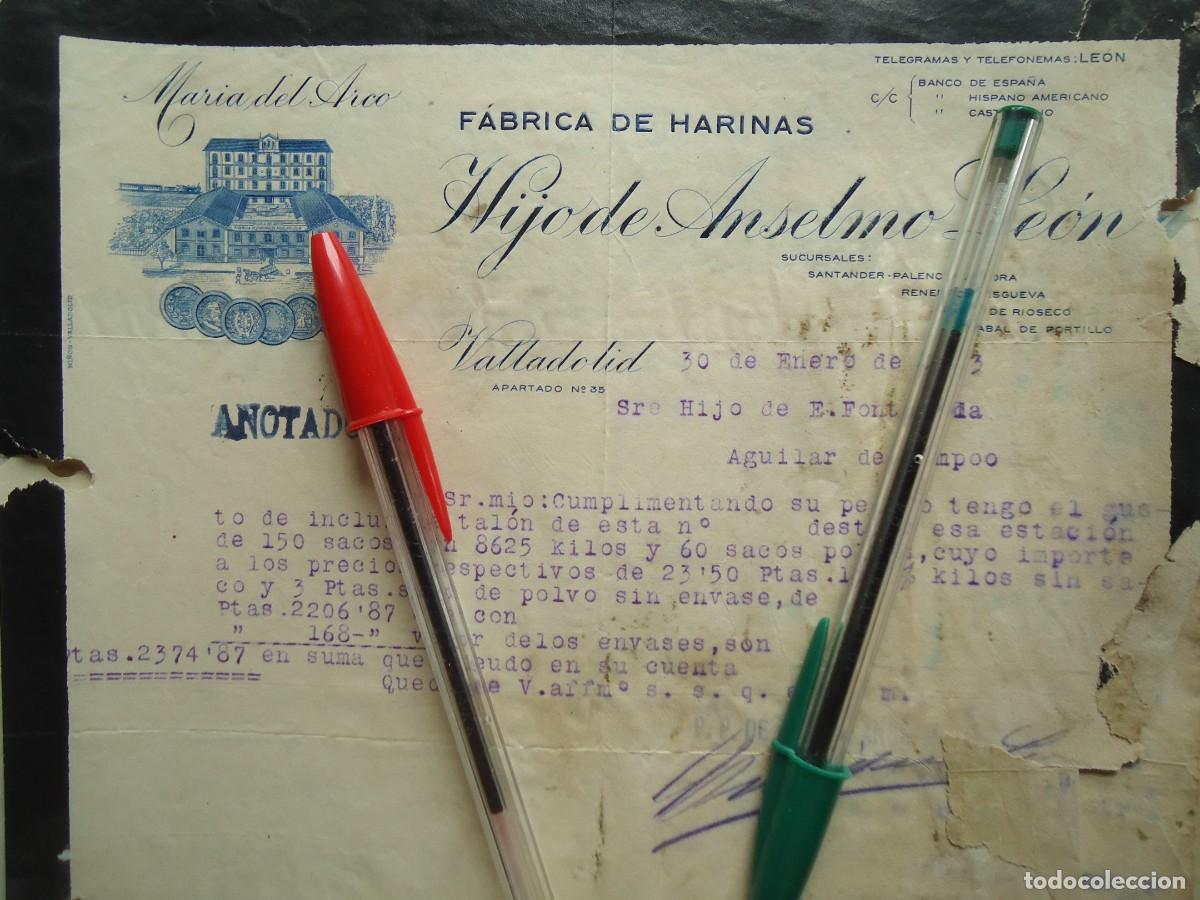 Maria del Arco
TELEGRAMAS Y TELEFONEMAS: LEÓN
C/C { BANCO DE ESPAÑA
" HISPANO AMERICANO
"
FÁBRICA DE HARINAS
Hijo de Anselmo León
SUCURSALES:
SANTANDER-PALENC ORA
RENE SGUEVA
DE RIOSECO
ABAL DE PORTILLO
Valladolid 30 de Enero de 3
APARTADO Nº 35
ANOTADO
Sre Hijo de E.Font da
Aguilar de mpoo
Sr.mio:Cumplimentando su pe o tengo el gus-
to de inclu talón de esta nº dest esa estación
de 150 sacos n 8625 kilos y 60 sacos po ,cuyo importe
a los precio espectivos de 23'50 Ptas. kilos sin sa-
co y 3 Ptas.s de polvo sin envase,de
Ptas.2206'87 con
" 168-" v r delos envases,son
tas.2374'87 en suma que eudo en su cuenta
============
Qued e V.affmº s. s. q. m.
P.P. DE
todocoleccion